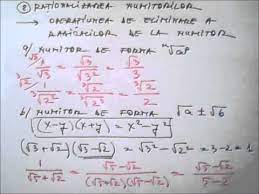 ⑧ RAȚIONALIZAREA NUMITORILOR
→ OPERAȚIUNEA DE ELIMINARE A
RADICALILOR DE LA NUMITOR
a) NUMITOR DE FORMA ⁿ√aᵖ
√3) 1/√3 = √3/√3² = √3/3
b) NUMITOR DE FORMA √a ± √b
(x-y)(x+y) = x²-y²
(√3+√2)(√3-√2) = √3² - √2² = 3-2 = 1
1/(√5+√2) = (√5-√2)/(√5+√2)(√5-√2) = (√5-√2)/(5-2)